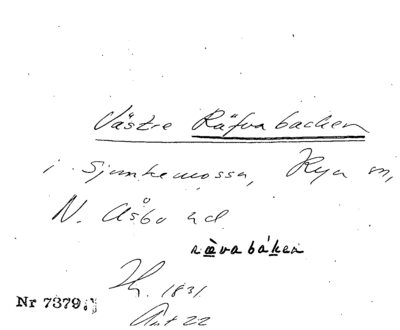 Västre Räfvabacken
i Sjunkemossa, Rya sn,
N. Åsbo hd
rävabáken
Hy. 1831
Nr 7379.
Ant 22